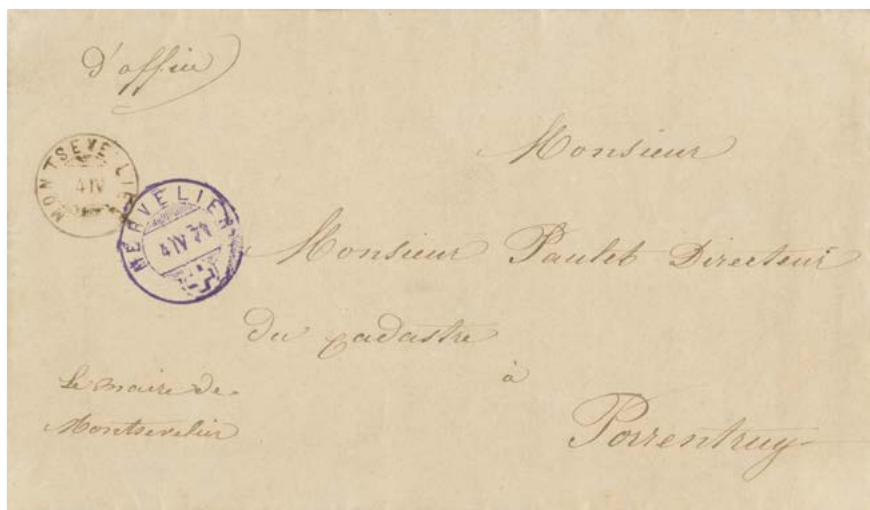 d'office
MONTSEVELIER
4 IV
MERVELIER
4 IV 71
Monsieur
Monsieur Paulet Directeur
du Cadastre
à
Porrentruy
Le maire de
Montsevelier